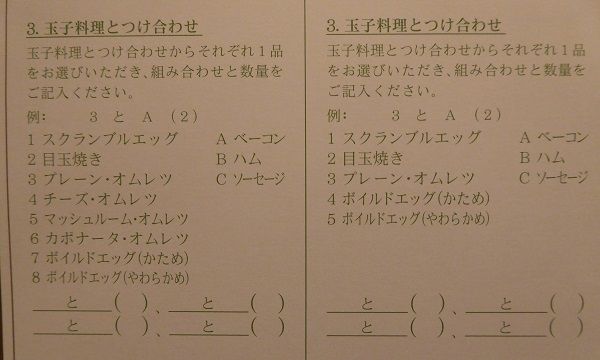 3. 玉子料理とつけ合わせ
玉子料理とつけ合わせからそれぞれ1品
をお選びいただき、組み合わせと数量を
ご記入ください。
例: 3 と A (2)
1 スクランブルエッグ A ベーコン
2 目玉焼き B ハム
3 プレーン・オムレツ C ソーセージ
4 チーズ・オムレツ
5 マッシュルーム・オムレツ
6 カポナータ・オムレツ
7 ボイルドエッグ(かため)
8 ボイルドエッグ(やわらかめ)
と ( )、 と ( )
と ( )、 と ( )
3. 玉子料理とつけ合わせ
玉子料理とつけ合わせからそれぞれ1品
をお選びいただき、組み合わせと数量を
ご記入ください。
例: 3 と A (2)
1 スクランブルエッグ A ベーコン
2 目玉焼き B ハム
3 プレーン・オムレツ C ソーセージ
4 ボイルドエッグ(かため)
5 ボイルドエッグ(やわらかめ)
と ( )、 と ( )
と ( )、 と ( )